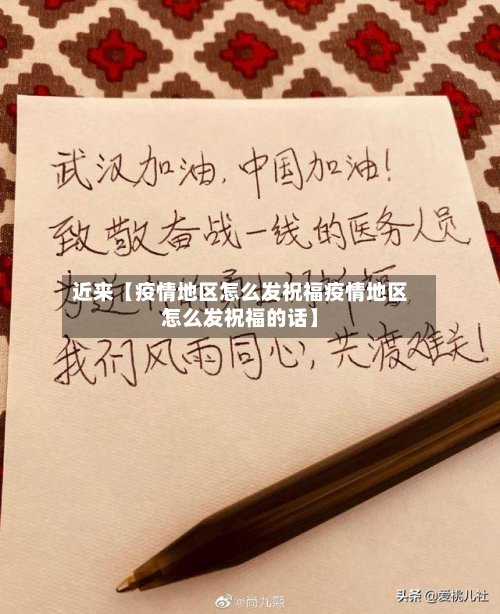 武汉加油，中国加油！
致敬奋战一线的医务人员
近来【疫情地区怎么发祝福疫情地区
怎么发祝福的话】
我们风雨同心，共渡难关！
@尚九熙
头条 @爱桃儿社